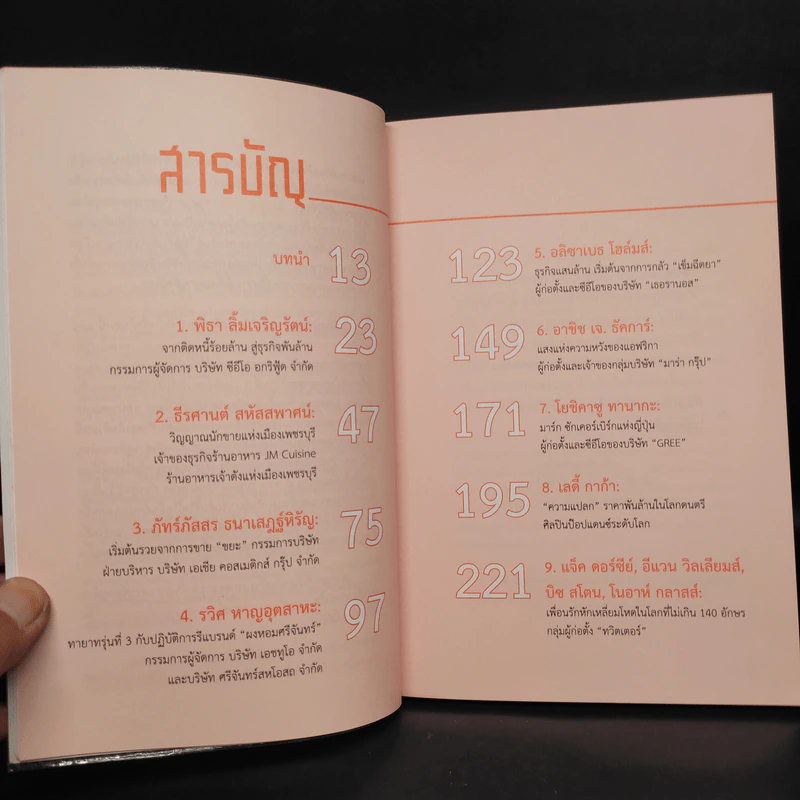 สารบัญ
บทนำ 13
1. พิธา ลิ้มเจริญรัตน์: 23
จากติดหนี้ร้อยล้าน สู่ธุรกิจพันล้าน
กรรมการผู้จัดการ บริษัท ซีอีโอ อกริฟู้ด จำกัด
2. ธีรศานต์ สหัสสพาศน์: 47
วิญญาณนักขายแห่งเมืองเพชรบุรี
เจ้าของธุรกิจร้านอาหาร JM Cuisine
ร้านอาหารเจ้าดังแห่งเมืองเพชรบุรี
3. ภัทร์ภัสสร ธนาเสฎฐ์หิรัญ: 75
เริ่มต้นรวยจากการขาย “ขยะ” กรรมการบริษัท
ฝ่ายบริหาร บริษัท เอเชีย คอสเมติกส์ กรุ๊ป จำกัด
4. รวิศ หาญอุตสาหะ: 97
ทายาทรุ่นที่ 3 กับปฏิบัติการรีแบรนด์ “ผงหอมศรีจันทร์”
กรรมการผู้จัดการ บริษัท เอชทูโอ จำกัด
และบริษัท ศรีจันทร์สหโอสถ จำกัด
123 5. อลิซาเบธ โฮล์มส์:
ธุรกิจแสนล้าน เริ่มต้นจากการกลัว “เข็มฉีดยา”
ผู้ก่อตั้งและซีอีโอของบริษัท “เธอรานอส”
149 6. อาชิช เจ. ธัคการ์:
แสงแห่งความหวังของแอฟริกา
ผู้ก่อตั้งและเจ้าของกลุ่มบริษัท “มาร่า กรุ๊ป”
171 7. โยชิคาซู ทานากะ:
มาร์ก ซักเคอร์เบิร์กแห่งญี่ปุ่น
ผู้ก่อตั้งและซีอีโอของบริษัท “GREE”
195 8. เลดี้ กาก้า:
“ความแปลก” ราคาพันล้านในโลกดนตรี
ศิลปินป๊อปแดนซ์ระดับโลก
221 9. แจ็ค ดอร์ซีย์, อีแวน วิลเลียมส์,
บิซ สโตน, โนอาห์ กลาสส์:
เพื่อนรักหักเหลี่ยมโหดในโลกที่ไม่เกิน 140 อักษร
กลุ่มผู้ก่อตั้ง “ทวิตเตอร์”